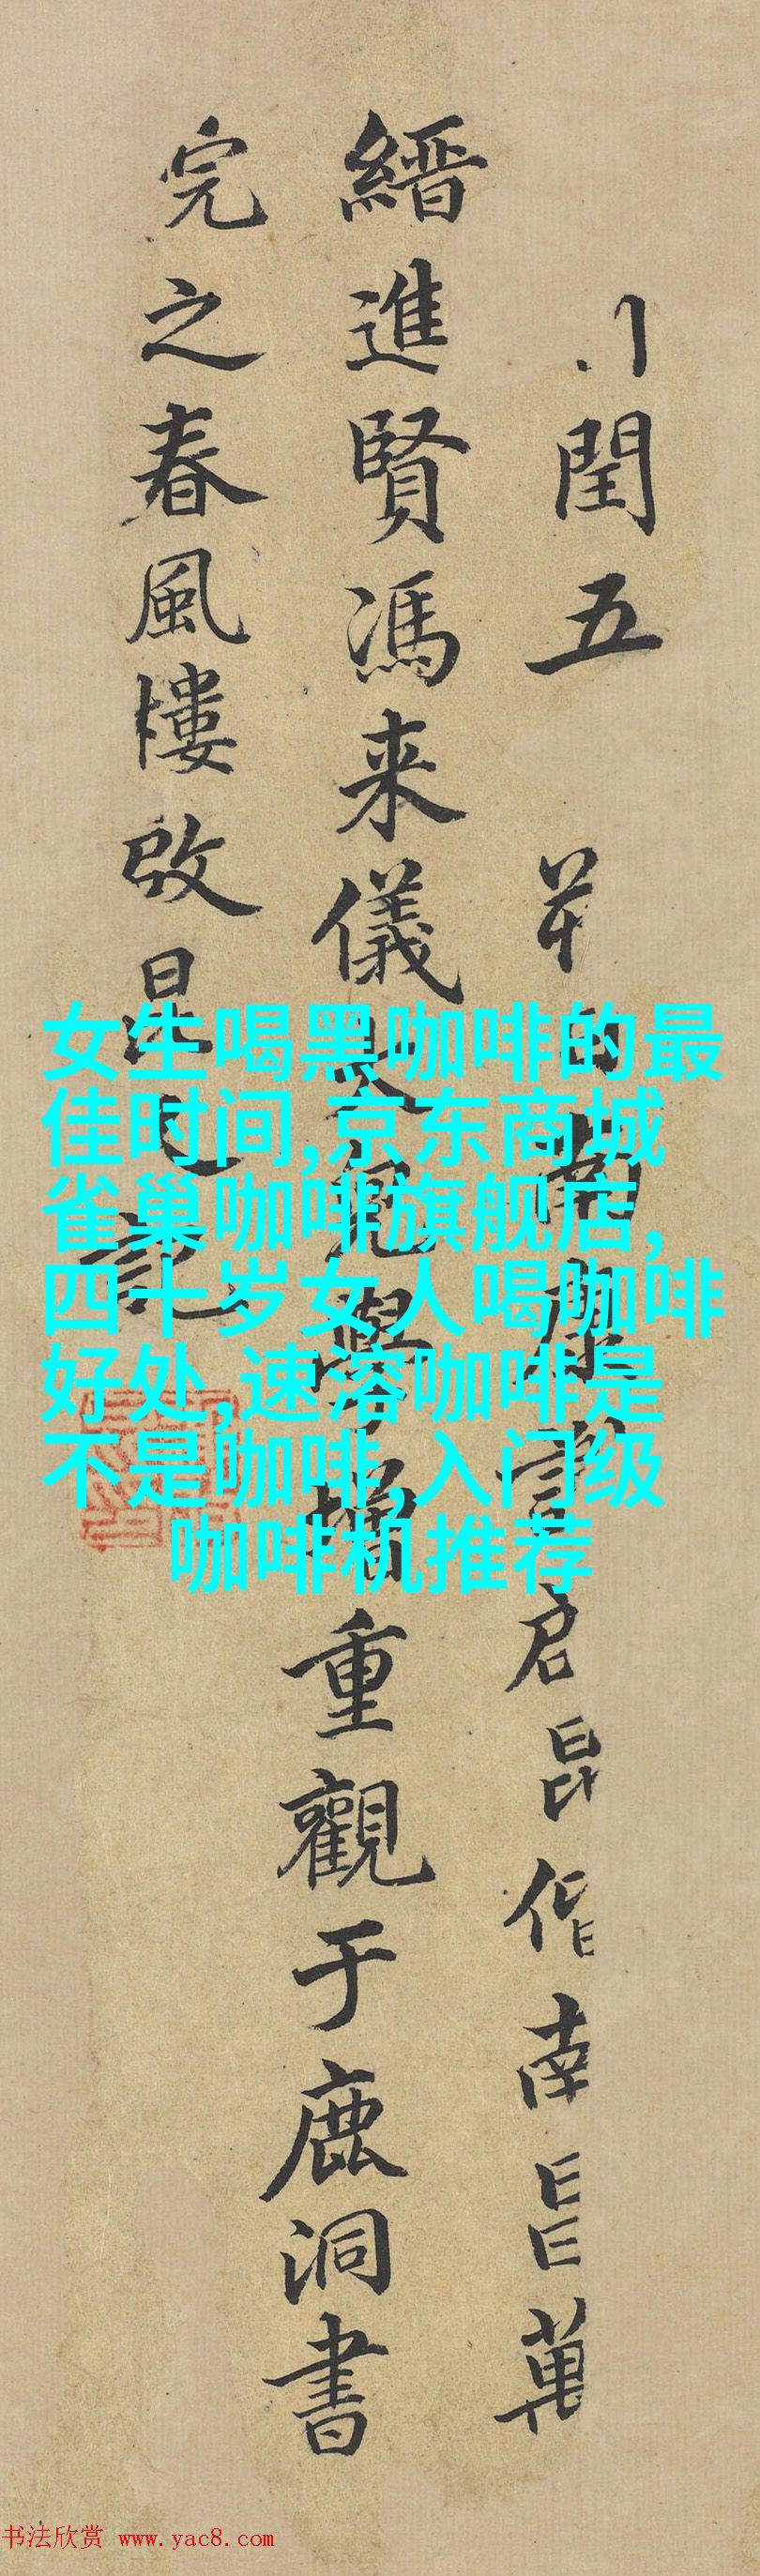 閏五南康君昆偕南昌萬
縉進賢馮来儀見增重觀于鹿洞書
完之春風樓記
女生喝黑咖啡的最
佳时间,京东商城
雀巢咖啡旗舰店,
四十岁女人喝咖啡
好处,速溶咖啡是
不是咖啡,入门级
咖啡机推荐
书法欣赏 www.yac8.com